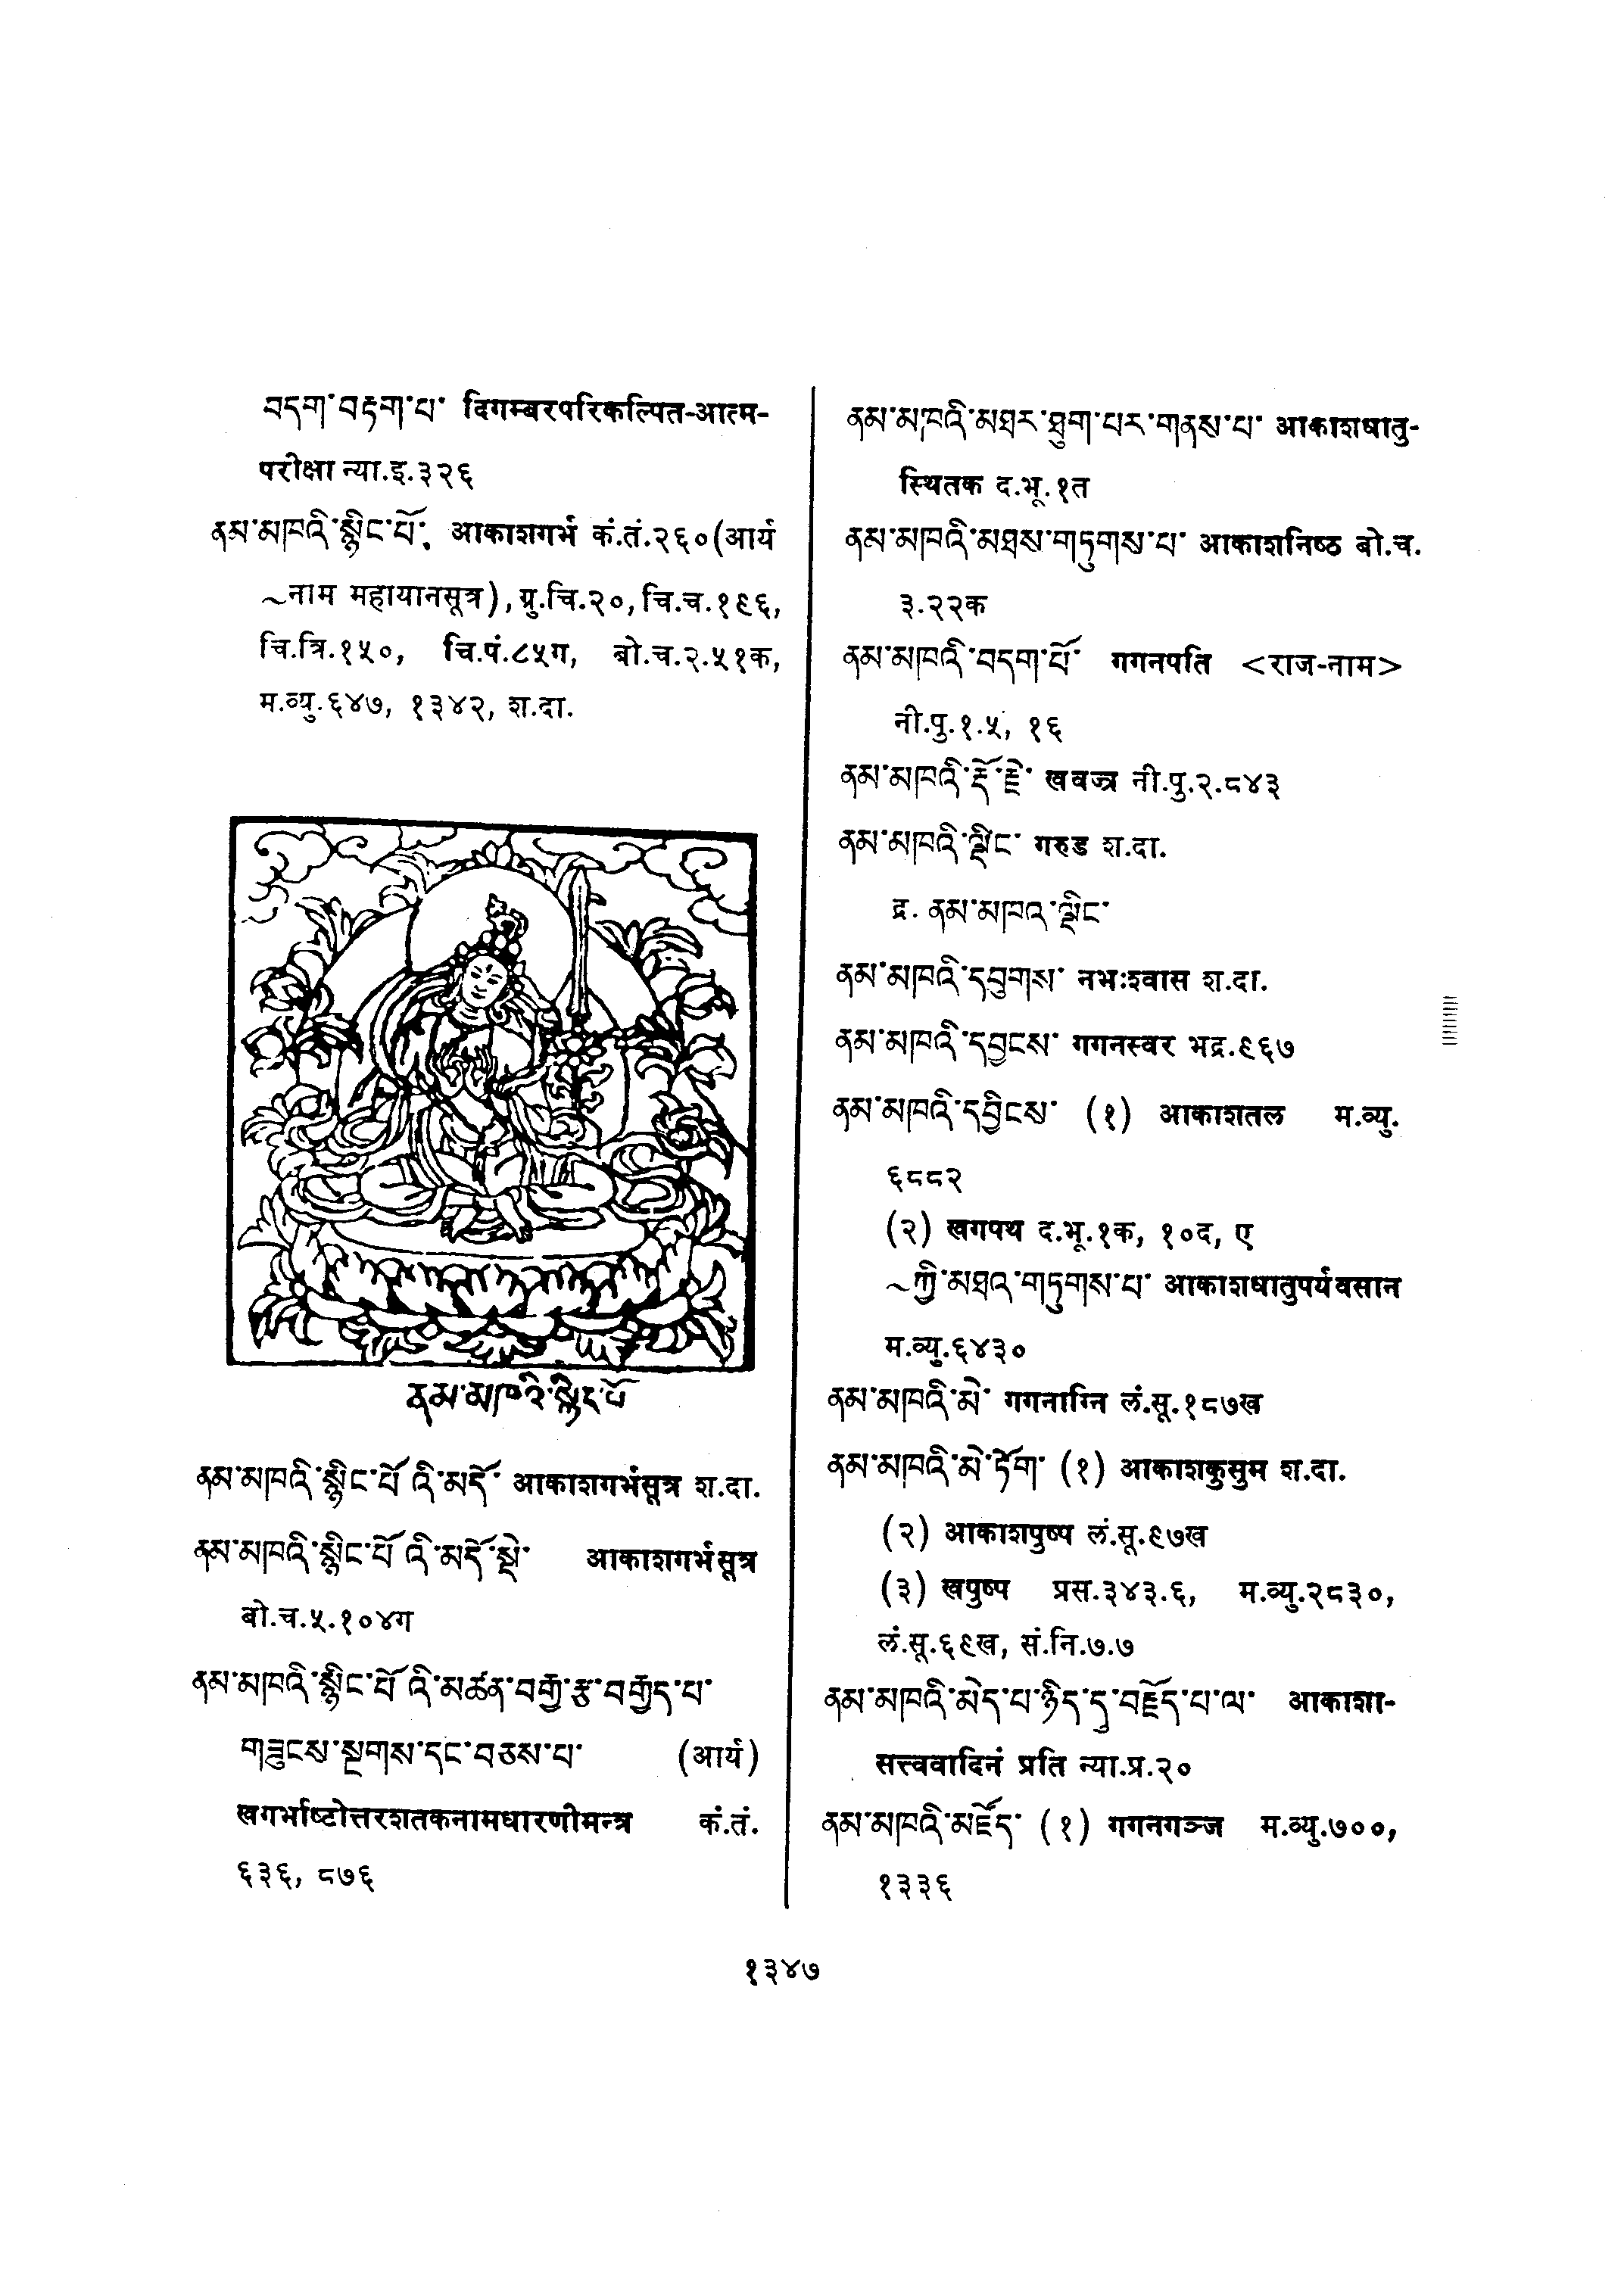 བདག་བརྟག་པ་ दिगम्बरपरिकल्पित-आत्म-
परीक्षा न्या.इ.३२६
ནམ་མཁའི་སྙིང་པོ་. आकाशगर्भ कं.तं.२६०(आर्य
~नाम महायानसूत्र), ग्रु.चि.२०, चि.च.१९६,
चि.त्रि.१५०, चि.पं.८५ग, बो.च.२.५१क,
म.व्यु.६४७, १३४२, श.दा.
ནམ་མཁའི་སྙིང་པོ
ནམ་མཁའི་སྙིང་པོ འི་མདོ་ आकाशगर्भसूत्र श.दा.
ནམ་མཁའི་སྙིང་པོ འི་མདོ་སྡེ་ आकाशगर्भसूत्र
बो.च.५.१०४ग
ནམ་མཁའི་སྙིང་པོ འི་མཚན་བརྒྱ་རྩ་བརྒྱད་པ་
གཟུངས་སྔགས་དང་བཅས་པ་ (आर्य)
खगर्भाष्टोत्तरशतकनामधारणीमन्त्र कं.तं.
६३६, ८७६
ནམ་མཁའི་མཐར་ཐུག་པར་གནས་པ་ आकाशधातु-
स्थितक द.भू.१त
ནམ་མཁའི་མཐས་གཏུགས་པ་ आकाशनिष्ठ बो.च.
३.२२क
ནམ་མཁའི་བདག་པོ་ गगनपति <राज-नाम>
नी.पु.१.५, १६
ནམ་མཁའི་རྡོ་རྗེ་ खवज्र नी.पु.२.८४३
ནམ་མཁའི་ལྡིང་ गरुड श.दा.
द्र. ནམ་མཁའ་ལྡིང་
ནམ་མཁའི་དབུགས་ नभःश्वास श.दा.
ནམ་མཁའི་དབྱངས་ गगनस्वर भद्र.९६७
ནམ་མཁའི་དབྱིངས་ (१) आकाशतल म.व्यु.
६८८२
(२) खगपथ द.भू.१क, १०द, ए
~ཀྱི་མཐའ་གཏུགས་པ་ आकाशधातुपर्यवसान
म.व्यु.६४३०
ནམ་མཁའི་མེ་ गगनाग्नि लं.सू.१८७ख
ནམ་མཁའི་མེ་ཏོག་ (१) आकाशकुसुम श.दा.
(२) आकाशपुष्प लं.सू.९७ख
(३) खपुष्प प्रस.३४३.६, म.व्यु.२८३०,
लं.सू.६९ख, सं.नि.७.७
ནམ་མཁའི་མེད་པ་ཉིད་དུ་བརྗོད་པ་ལ་ आकाशा-
सत्त्ववादिनं प्रति न्या.प्र.२०
ནམ་མཁའི་མཛོད་ (१) गगनगञ्ज म.व्यु.७००,
१३३६
१३४७